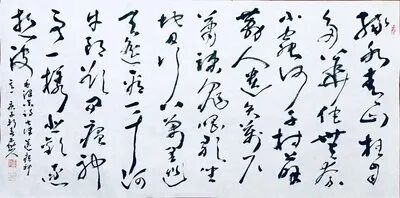 绿水青山枉自
多華佗無奈
小蟲何千村薜
荔人遺矢萬户
蕭疏鬼唱歌坐
地日行八萬里巡
天遥看一千河
牛郎欲问瘟神
事一樣悲歡逐
逝波
毛澤東詩七律送瘟神